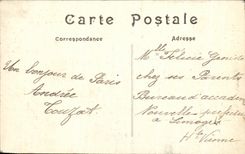 Carte Postale
Correspondance
Adresse
Un bonjour de Paris
Andrée
Mlle Félicie
chez ses Parents
Bureau d'
Nouvelle
à Limoges
Hte Vienne